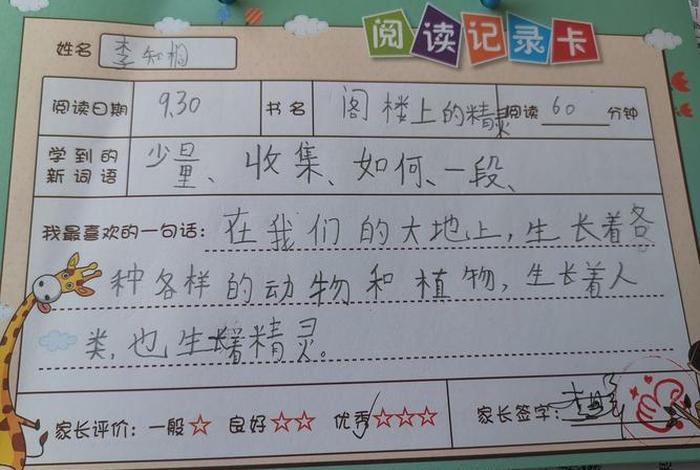 阅读记录卡
姓名 李知桐
阅读日期 9.30 书名 阁楼上的精灵 阅读 60 分钟
学到的新词语 少量、收集、如何、一段、
我最喜欢的一句话：在我们的大地上，生长着各
种各样的动物和植物，生长着人
类，也生长着精灵。
家长评价：一般☆ 良好☆☆ 优秀☆☆☆ 家长签字：